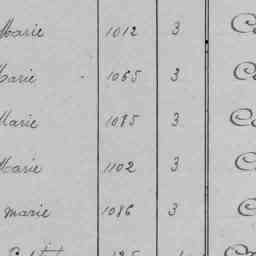 Marie 1012 3
Marie 1065 3
Marie 1085 3
Marie 1102 3
marie 1086 3